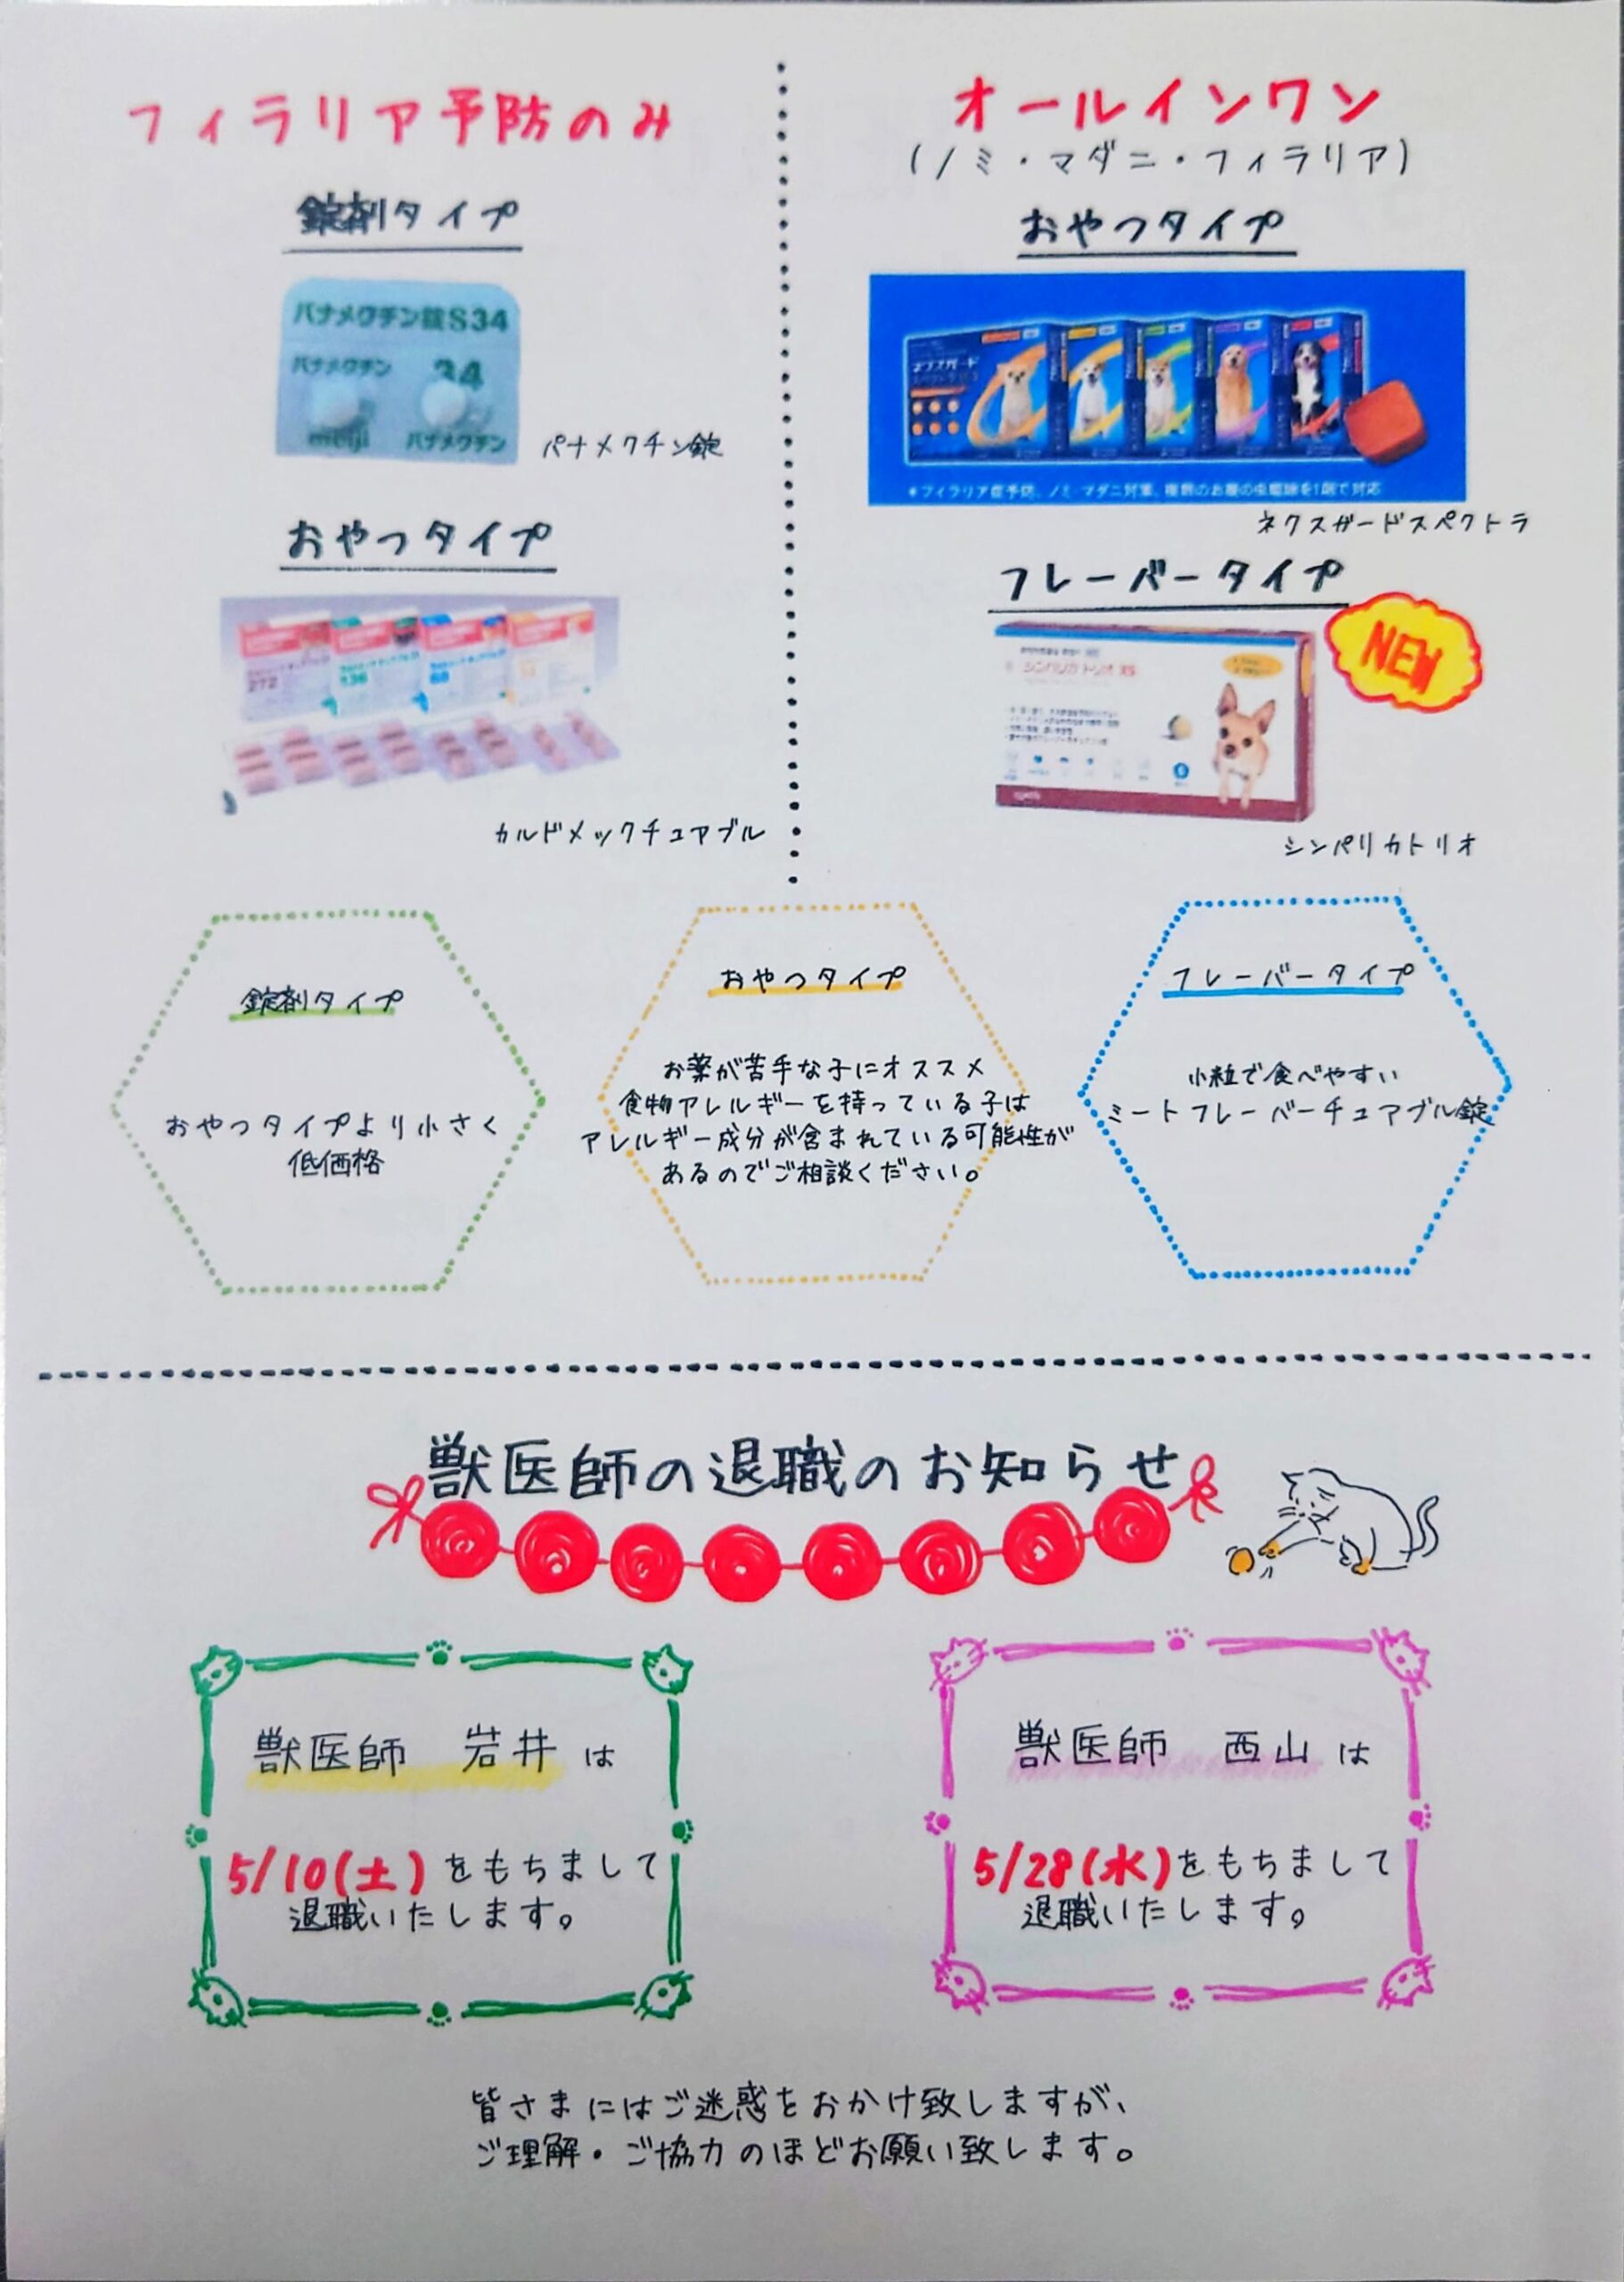 フィラリア予防のみ
錠剤タイプ
パナメクチン錠S34
パナメクチン
34
meiji
パナメクチン
パナメクチン錠
おやつタイプ
272
136
68
カルドメックチュアブル
オールインワン
(ノミ・マダニ・フィラリア)
おやつタイプ
ネクスガード
スペクトラ
*フィラリア症予防、ノミ・マダニ対策、複数のお腹の虫駆除を1個で対応
ネクスガードスペクトラ
フレーバータイプ
NEW
シンパリカ トリオ XS
シンパリカトリオ
錠剤タイプ
おやつタイプより小さく
低価格
おやつタイプ
お薬が苦手な子にオススメ
食物アレルギーを持っている子は
アレルギー成分が含まれている可能性が
あるのでご相談ください。
フレーバータイプ
小粒で食べやすい
ミートフレーバーチュアブル錠
獣医師の退職のお知らせ
獣医師 岩井 は
5/10(土)をもちまして
退職いたします。
獣医師 西山 は
5/28(水)をもちまして
退職いたします。
皆さまにはご迷惑をおかけ致しますが、
ご理解・ご協力のほどお願い致します。